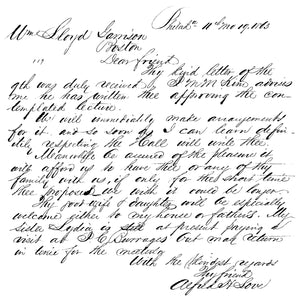 Philada 11th Mo 19, 1863
Wm Lloyd Garrison
Boston
Dear friend
Thy kind letter of the
9th was duly received & J M McKim advises
me he has written thee approving the con-
templated lecture.
We will immediately make arrangements
for it, and so soon as I can learn defin-
itely respecting the Hall will write thee.
Meanwhile be assured of the pleasure it
will afford us to have thee or any of thy
family with us, if only for the short time
thee proposed. We wish it could be longer.
Thy good wife & daughter will be especially
welcome either to my house or fathers. My
sister Lydia is at present paying a
visit at Burrages but may return
in time for the meeting
With the kindest regards
Thy friend
Alfred H Love